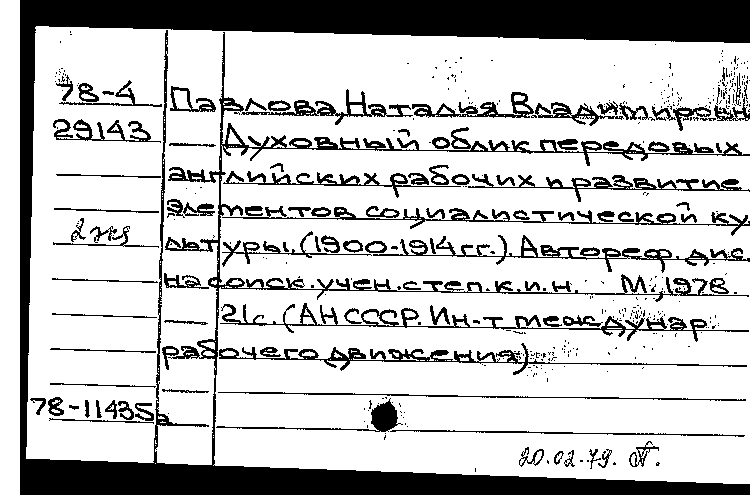 78-4 Павлова, Наталья Владимировн
29143 — Духовный облик передовых
английских рабочих и развитие
элементов социалистической ку-
2 экз льтуры. (1900-1914 гг.). Автореф. дис.
на соиск. учен. степ. к.и.н. М., 1978.
21с. (АН СССР. Ин-т междунар.
рабочего движения)
78-11435а
20.02.79.